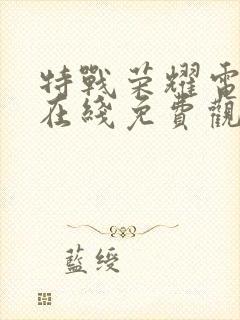 特戰荣耀電
在綫免費觀
藍綬